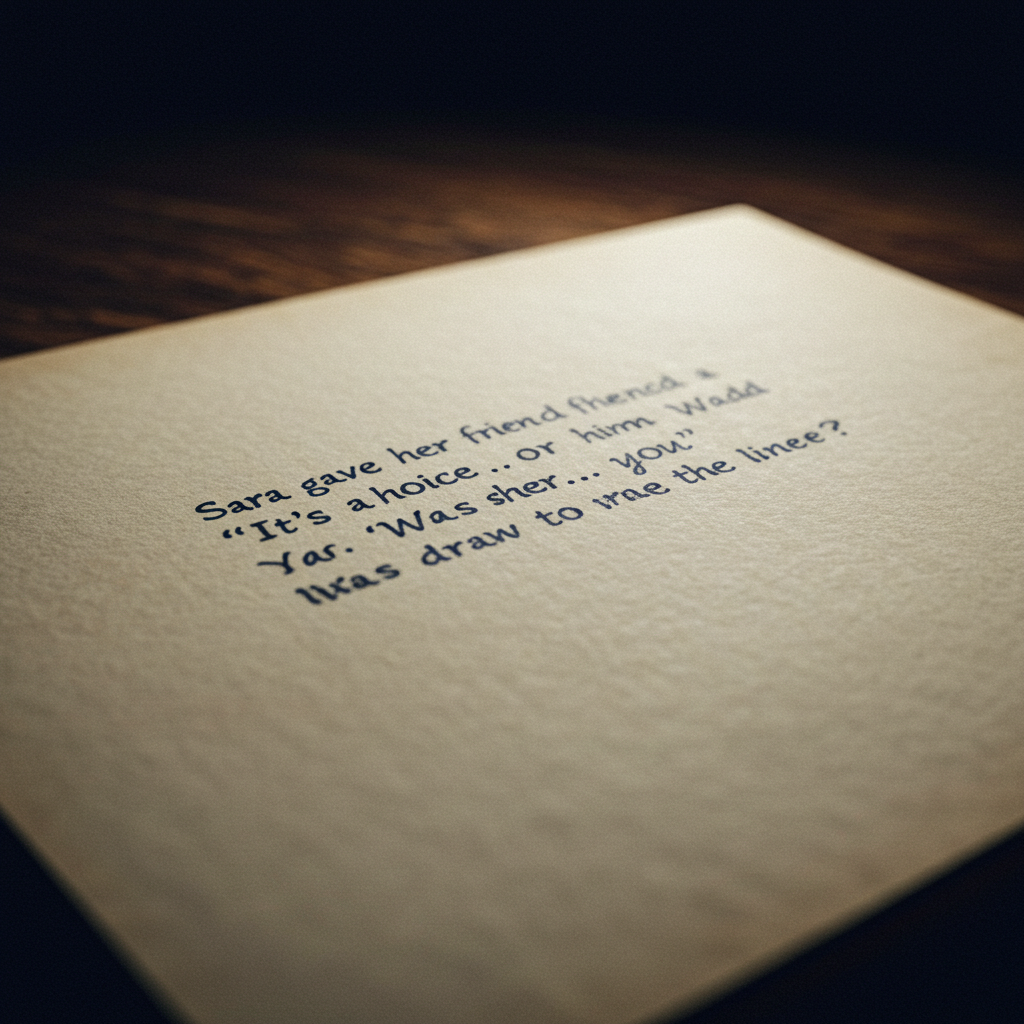 Sara gave her friend fhencd a
“It's ahoice ..or him Wadd
Yar. ‘Was sher... you”
draw to the linee?